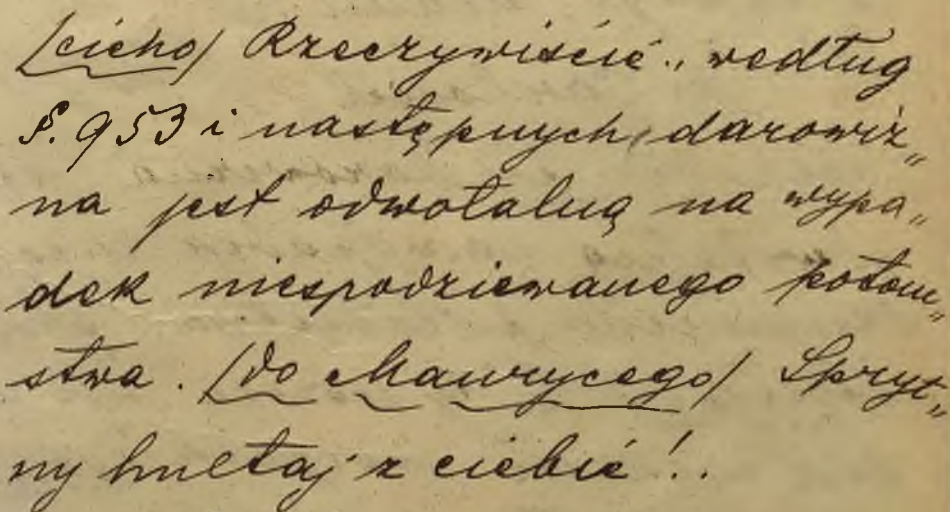 /cicho/ Rzeczywiście.. według
§. 953 i następnych, darowiz„
na jest odwołalną na wypa„
dek niespodziewanego potom„
stwa. /do Maurycego/ Spryt„
ny hultaj z ciebie!..